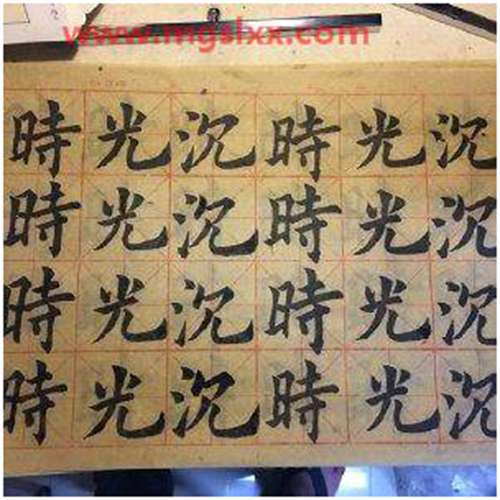 www.mgslxx.com
時光沉時光沉
時光沉時光沉
時光沉時光沉
時光沉時光沉